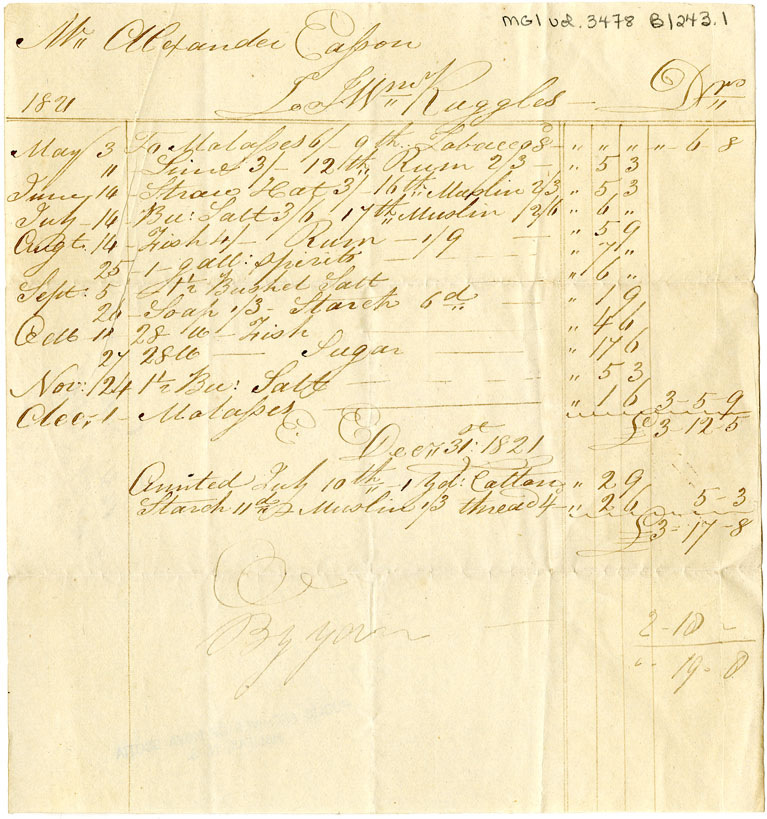 MG1 vol. 3478 B1243.1
Mr Alexander Easson
1821 To J Wm Ruggles — Drs
May 3 To Molasses 6/- 9th Tobacco 8 — " " " " - 6 - 8
" — Lime 3/- 12th Rum 2/3 — " 5 3
June 14 — Straw Hat 3/- 16th Muslin 2/3 " 5 3
July - 14 - Bu: Salt 3/6 - 17th Muslin /2/6 " 6 "
Augt. 14 - Fish 4/- Rum — 1/9 — " 5 9
25 - 1 - gall: spirits — — — " 7 "
Sept: 5 1½ Bushel Salt " 6 "
20 - Soap 1/3 - Starch 6d — " 1 9
Octb 11 28 lb - Fish " 4 6
27 28 lb — Sugar — " 17 6
Nov: 24 1½ Bu: Salt — — — " 5 3
Decr 1 - Molasses — " 1 6 3 - 5 - 9
E. E £3 - 12 - 5
Decr 31st 1821
Omited July 10th - 1 yd: Cotton " 2 9
Starch 11d Muslin 1/3 thread 4 - " 2 6 5 - 3
£3 - 17 - 8
By your — 2 - 18 -
" - 19 - 8